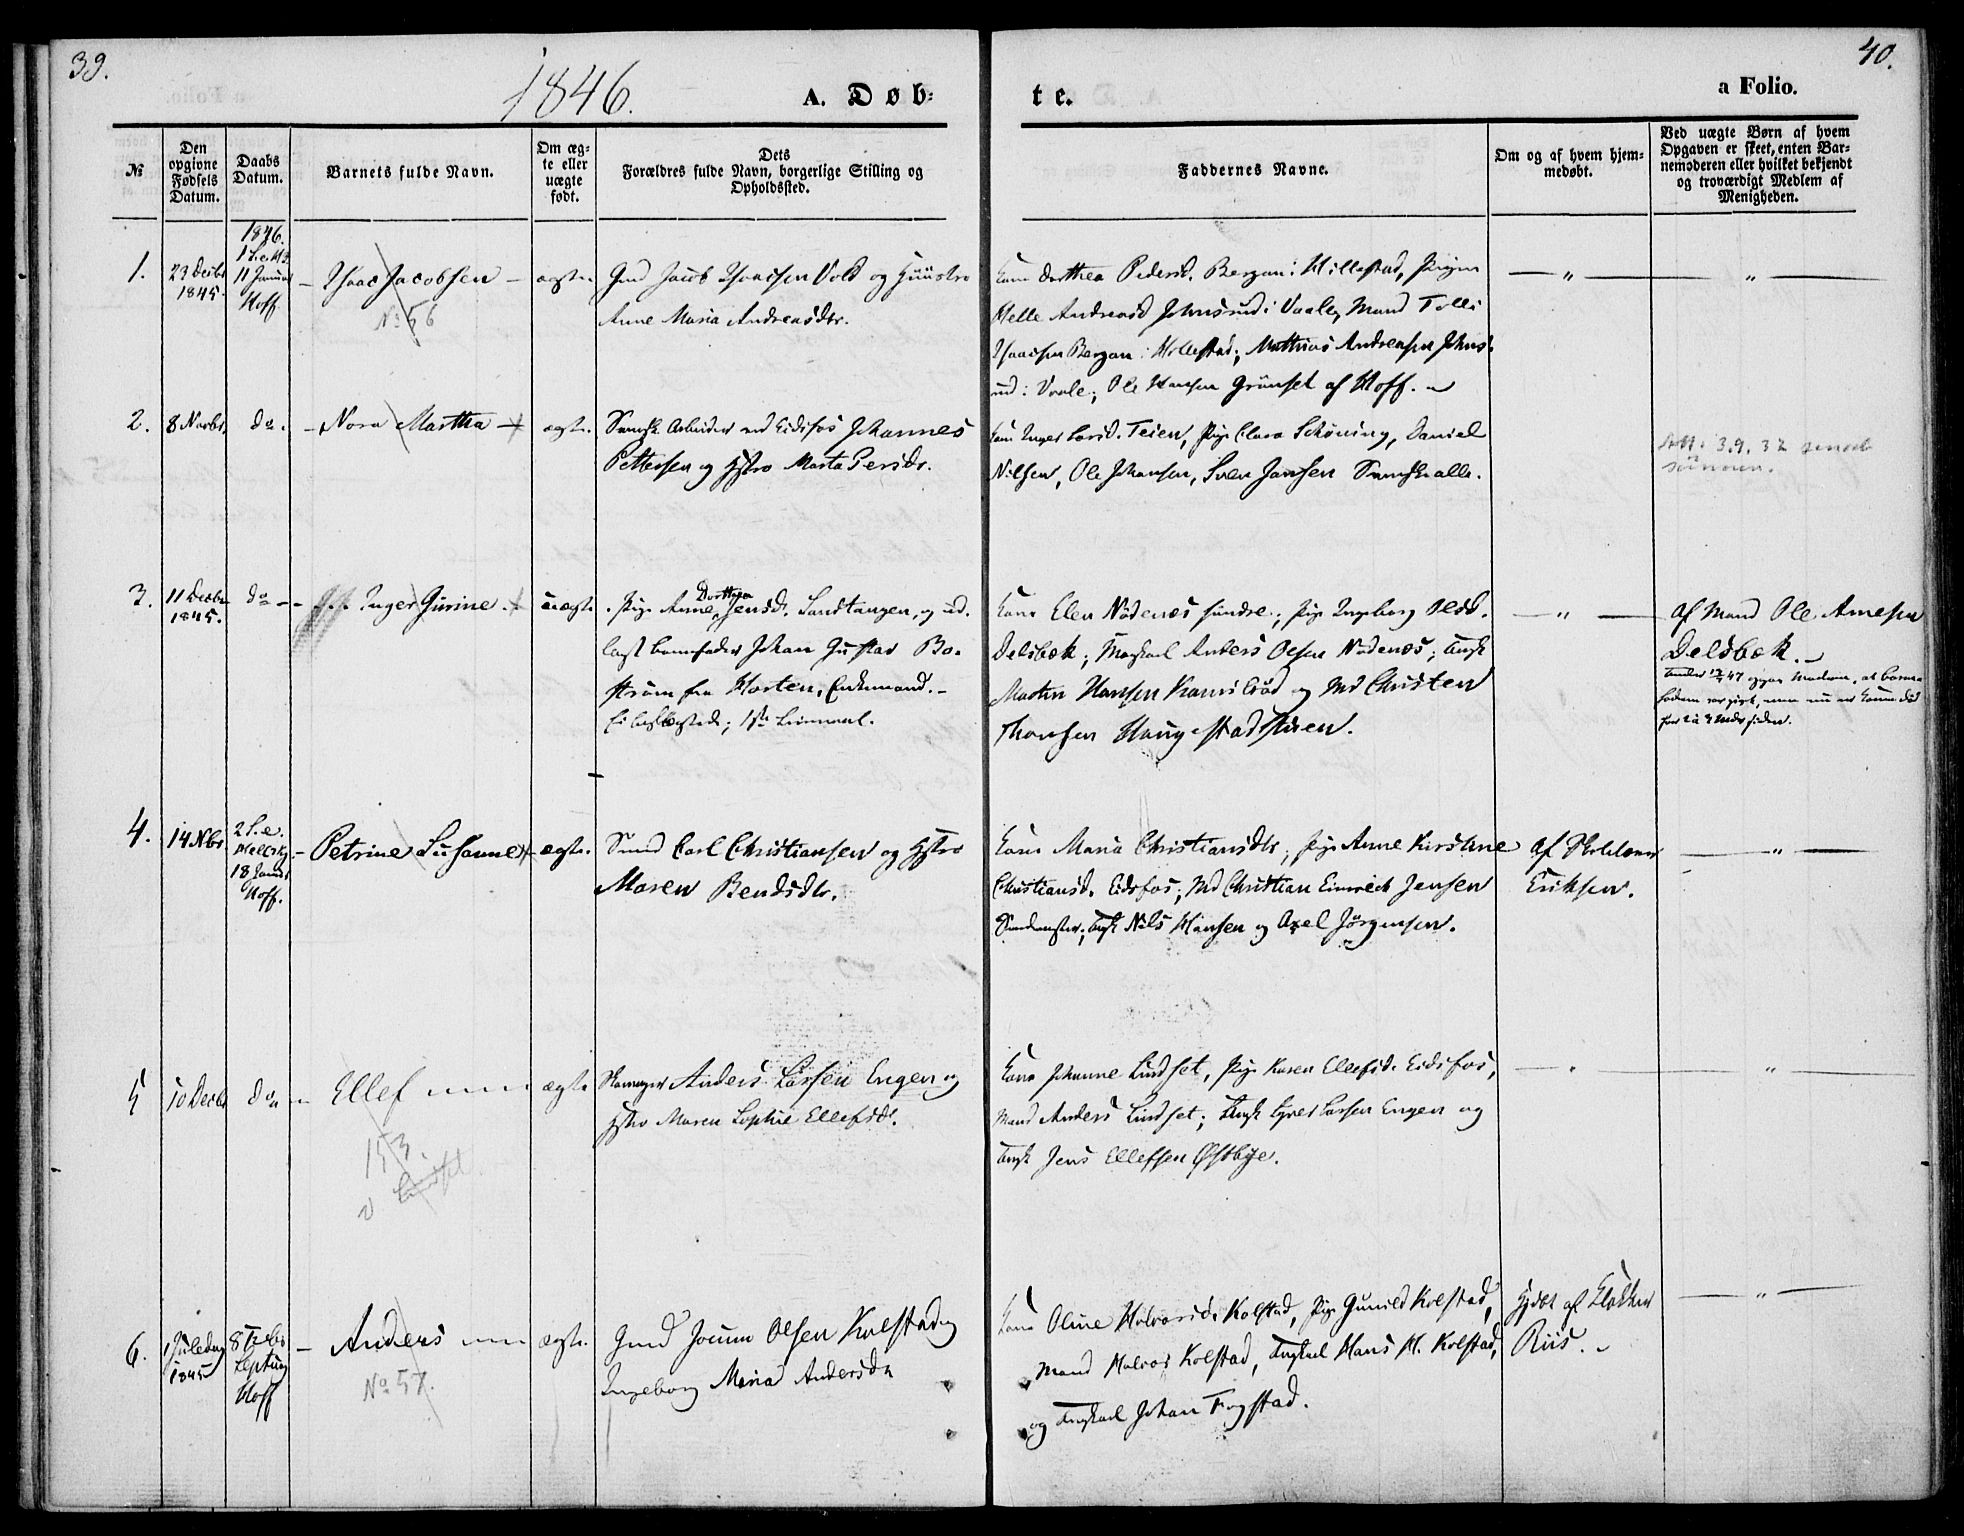 39.
40.
1846.
A. Døb-
te.
a Folio.
№
Den opgivne Fødsels Datum.
Daabs Datum.
Barnets fulde Navn.
Om ægte eller uægte født.
Dets
Forældres fulde Navn, borgerlige Stilling og
Opholdssted.
Faddernes Navne.
Om og af hvem hjemmedøbt.
Ved uægte Børn af hvem
Opgaven er skeet, enten Bar-
nemoderen eller hvilket bekjendt
og troværdigt Medlem af
Menigheden.
1.
23 Decbr
1845.
1846.
11 Januar
Hoff
Isaac Jacobsen
No 56
ægte
Gmd Jacob Isaacsen Vold og Huustro
Anne Maria Andreasdtr.
Kone Dorthea Pedersd. Bergan i Hillestad, Pigen
Helle Andreasd Johnsrud i Vaale, Mand Tolle
Isaacsen Bergan i Hillestad; Mathias Andreasen Johns-
rud i Vaale; Ole Hansen Grønset af Hoff.
2.
8 Novbr.
do.
Nora Martha
ægte.
Svensk Arbeider ved Eidsfos Johannes
Pettersen og Hstro Marta Persdr.
Kone Inger Larsd. Teien, Pige Clara Schöning, Daniel
Nilsen, Ole Johansen, Sven Jansen Svenske alle.
3.
11 Decbr
1845.
do
Inger Gurine
uægte
Pige Anne Dorthea Jensdr. Sandtangen, og ud-
lagt barnefader Johan Gustav Bo-
strøm fra Horten, Enkemand.
1ste Leiermaal.
Kone Elen Nødenes søndre; Pige Ingeborg Olsd.
Delsbæk; Ungkarl Anders Olsen Nødenes; Ungk
Martin Hansen og Md Christen
Thorsen Haugestad
af Mand Ole Arnesen
Delsbæk.
4.
14 Nbr.
2 S. e.
18 Januar
Hoff.
Petrine Susanne
ægte.
Smed Carl Christiansen og Hstro
Maren Bendsdtr.
Kone Maria Christiansdtr, Pige Anne Kirstine
Christiansd. Eidsfos; Md Christian Jensen
Ungk Nils Hansen og Axel Jørgensen.
af Skolelærer
Eriksen.
5
10 Decbr
do
Ellef
153.
Lindset
ægte
Skomager Anders Larsen Engen og
Hstro Maren Sophie Ellefsdr.
Kone Johanne Lindset, Pige Karen Ellefsd. Eidsfos,
Mand Anders Lindset; Ungk Larsen Engen og
Ungk Jens Ellefsen Østbye.
6.
1 Juledag
1845
8 Febr
Septuag
Hoff
Anders
No 57.
ægte.
Gmd Olsen Kolstad og
Ingeborg Maria Andersdr
Kone Oline Halvorsd. Kolstad, Pige Gunild Kolstad,
Mand Halvor Kolstad, Ungkarl Hans H. Kolstad,
og Ungkarl Johan Fogstad.
Hjdbt af Klokker
Riis.